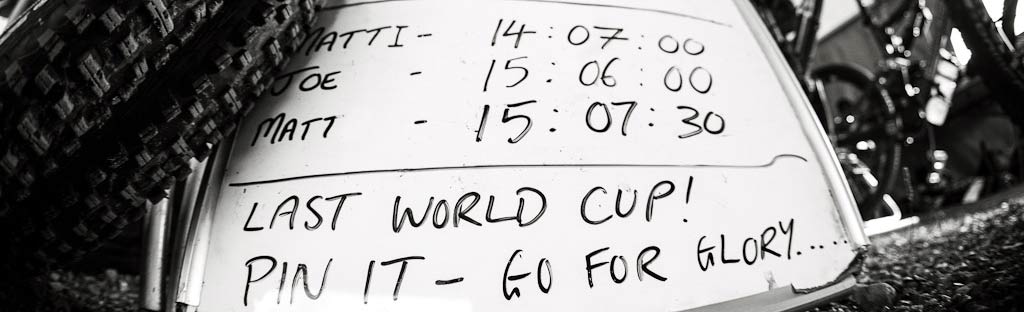 MATTI - 14:07:00
JOE - 15:06:00
MATT - 15:07:30
LAST WORLD CUP!
PIN IT - GO FOR GLORY.....